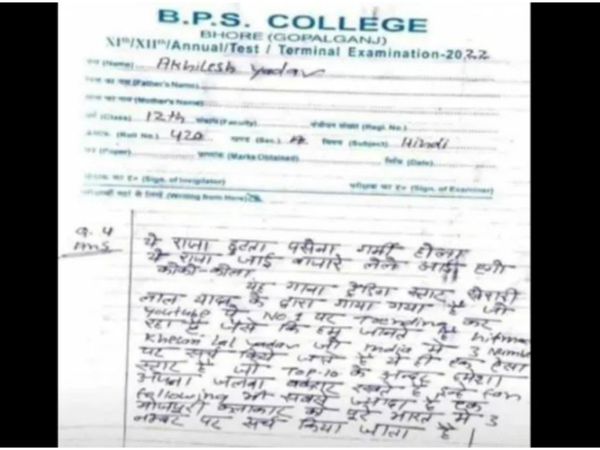 B.P.S. COLLEGE
BHORE (GOPALGANJ)
XIth/XIIth/Annual/Test / Terminal Examination-2022
नाम (Name) Akhilesh yadav
पिता का नाम (Father's Name)
माता का नाम (Mother's Name)
वर्ग (Class) 12th संकाय (Faculty) पंजीयन संख्या (Regi. No.)
क्रमांक (Roll No.) 420 खण्ड (Sec.) A विषय (Subject) Hindi
पत्र (Paper) प्राप्तांक (Marks Obtained) तिथि (Date)
(Sign. of Invigilator) परीक्षक का ह० (Sign. of Examiner)
यहाँ से लिखें (Writing from Here)
Q.4
Ans
ये राजा छुटता पसेना गर्मी होला
ये राजा जाई बाजारे लेले आई हमी
कोका-कोला
यह गाना ट्रेंडिंग स्टार खेसारी
लाल यादव के द्वारा गाया गया है जो
Youtube पे NO.1 पर Trending कर
रहा है जैसे कि हम जानते है hitman
Khesari lal yadav जी India में 3 Number
पर सर्च किये जाते है ये ही एक ऐसा
स्टार है जो TOP-10 के अन्दर हमेशा
अपना जलवा बरकरार रखते है इनके fan
following भी सबसे ज्यादा है एक
भोजपुरी कलाकार को पूरे भारत में 3
नम्बर पर सर्च किया जाता है।